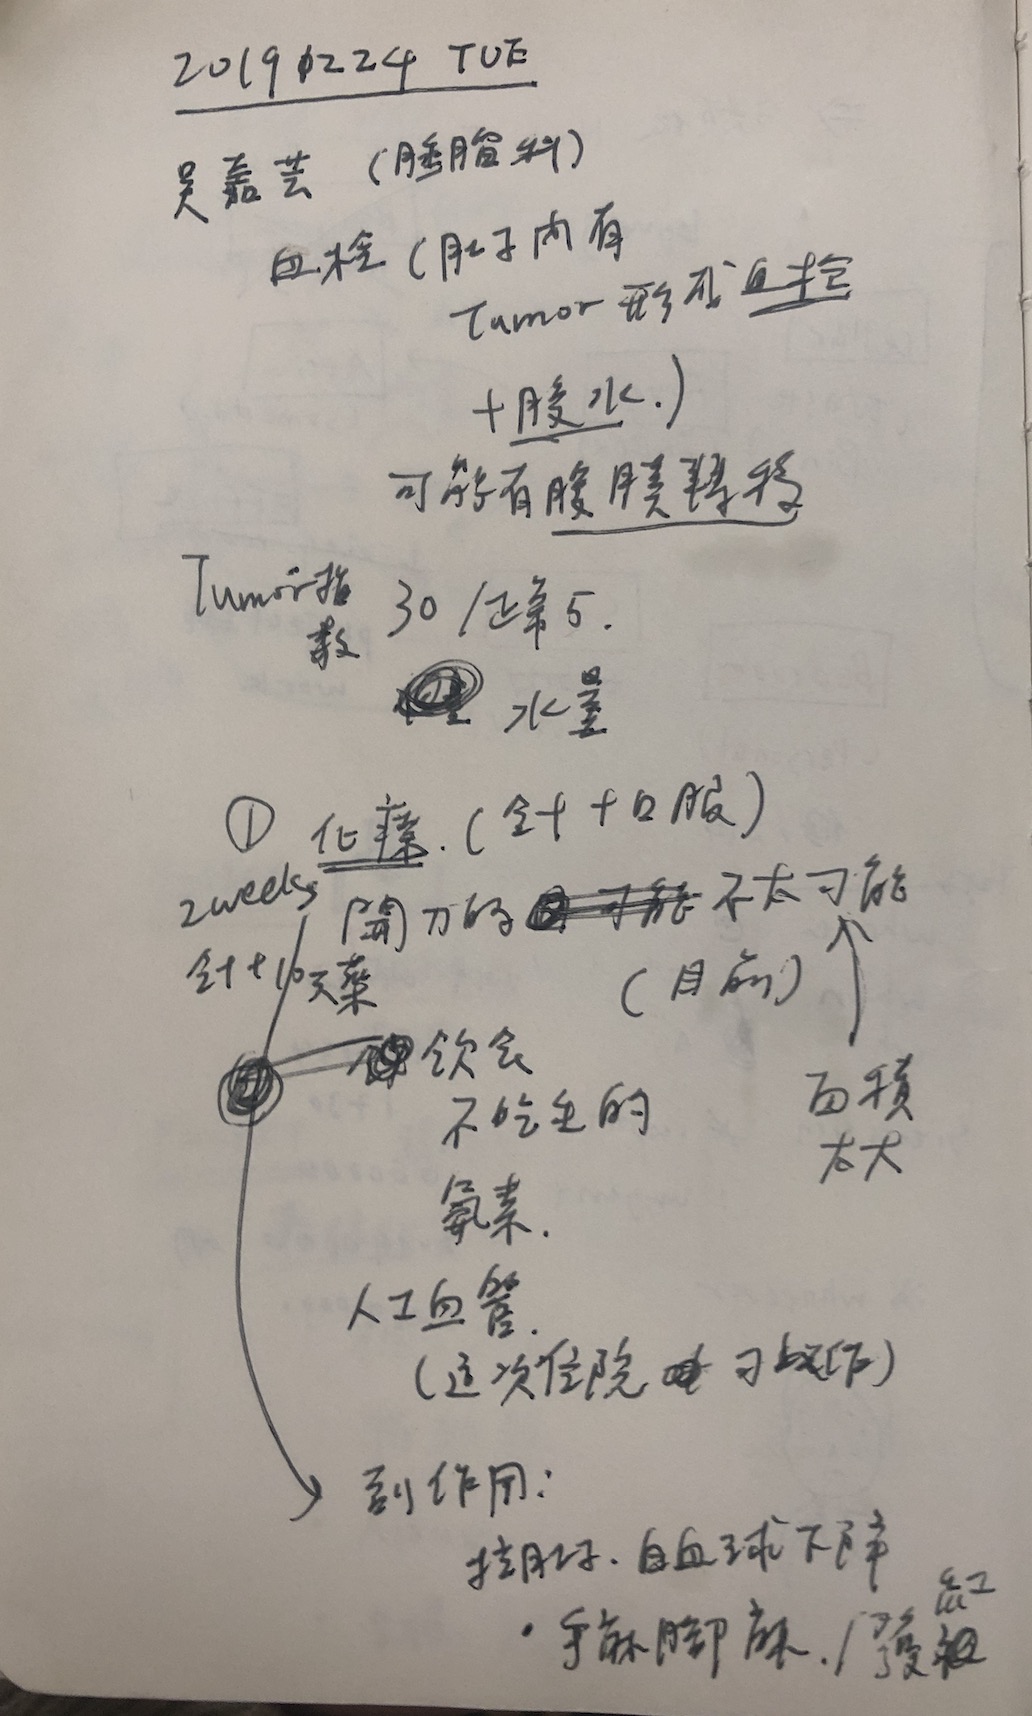 20191224 TUE
吳嘉芸 (腫瘤科)
血栓 (肚子內有
Tumor 形成血栓
+腹水.)
可能有腹膜轉移
Tumor 指數 30 /正常 5.
水量
① 化療. (針+口服)
2weeks
開刀的 可能 不太可能
針+10天藥
(目前)
飲食
面積
太大
不吃生的
氨素.
人工血管.
(這次住院 可以作)
副作用:
拉肚子. 白血球下降
・手麻腳麻. /發紅